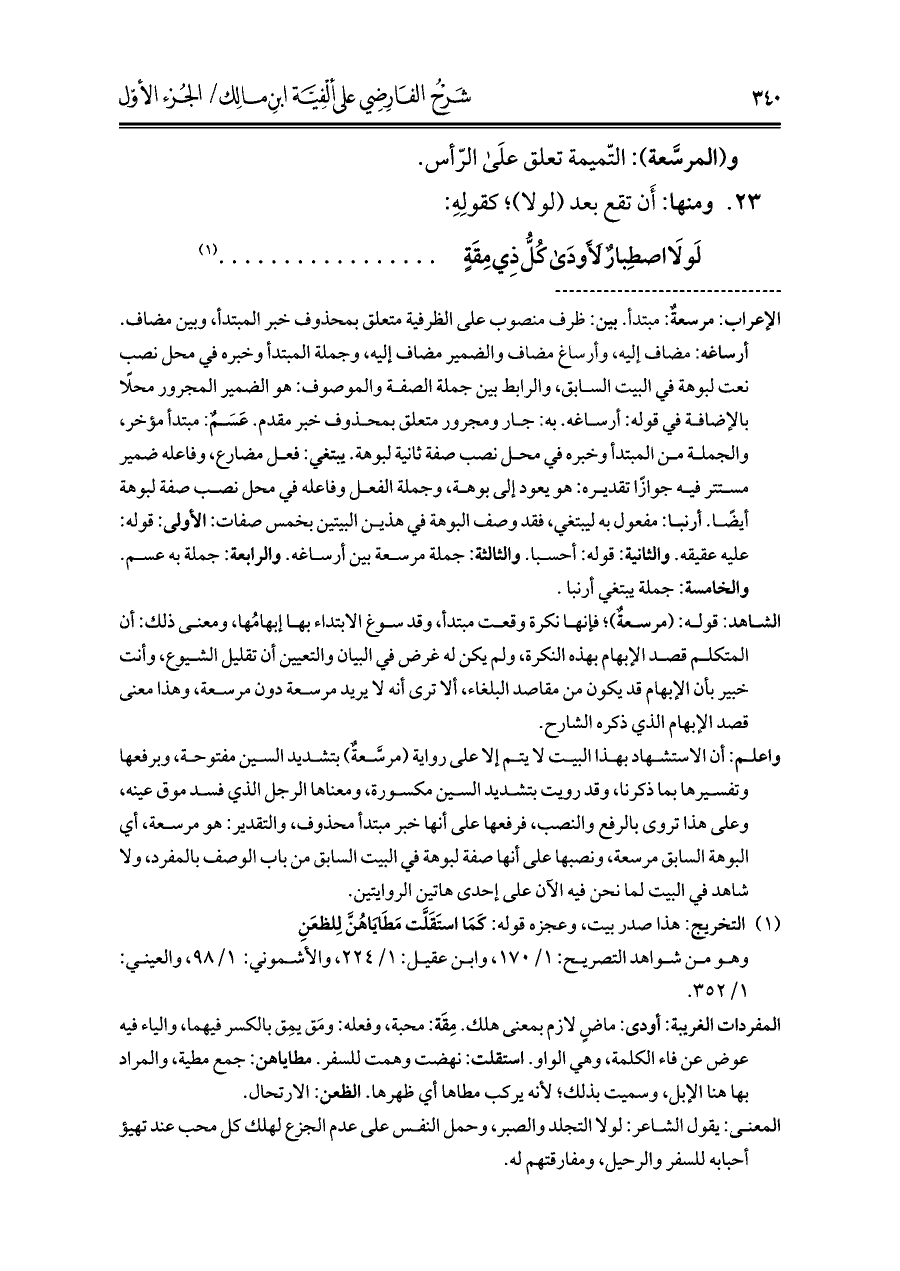 ٣٤٠ شَرْحُ الفَارِضِي عَلى أَلْفِيَّة ابنِ مَالِك/ الجُزء الأوّل
و(المرسَّعة): التّميمة تعلق علَىٰ الرّأس.
٢٣. ومنها: أَن تقع بعد (لولا)؛ كقولِهِ:
لَولَا اصطِبارٌ لَأَودَىٰ كُلُّ ذِي مِقَةٍ .................(١)
الإعراب: مرسعةٌ: مبتدأ. بين: ظرف منصوب على الظرفية متعلق بمحذوف خبر المبتدأ، وبين مضاف.
أرساغه: مضاف إليه، وأرساغ مضاف والضمير مضاف إليه، وجملة المبتدأ وخبره في محل نصب
نعت لبوهة في البيت السابق، والرابط بين جملة الصفة والموصوف: هو الضمير المجرور محلًا
بالإضافة في قوله: أرساغه. به: جار ومجرور متعلق بمحذوف خبر مقدم. عَسَمٌ: مبتدأ مؤخر،
والجملة من المبتدأ وخبره في محل نصب صفة ثانية لبوهة. يبتغي: فعل مضارع، وفاعله ضمير
مستتر فيه جوازًا تقديره: هو يعود إلى بوهة، وجملة الفعل وفاعله في محل نصب صفة لبوهة
أيضًا. أرنبا: مفعول به ليبتغي، فقد وصف البوهة في هذين البيتين بخمس صفات: الأولى: قوله:
عليه عقيقه. والثانية: قوله: أحسبا. والثالثة: جملة مرسعة بين أرساغه. والرابعة: جملة به عسم.
والخامسة: جملة يبتغي أرنبا .
الشاهد: قوله: (مرسعةٌ)؛ فإنها نكرة وقعت مبتدأ، وقد سوغ الابتداء بها إبهامُها، ومعنى ذلك: أن
المتكلم قصد الإبهام بهذه النكرة، ولم يكن له غرض في البيان والتعيين أن تقليل الشيوع، وأنت
خبير بأن الإبهام قد يكون من مقاصد البلغاء، ألا ترى أنه لا يريد مرسعة دون مرسعة، وهذا معنى
قصد الإبهام الذي ذكره الشارح.
واعلم: أن الاستشهاد بهذا البيت لا يتم إلا على رواية (مرسَّعةٌ) بتشديد السين مفتوحة، وبرفعها
وتفسيرها بما ذكرنا، وقد رويت بتشديد السين مكسورة، ومعناها الرجل الذي فسد موق عينه،
وعلى هذا تروى بالرفع والنصب، فرفعها على أنها خبر مبتدأ محذوف، والتقدير: هو مرسعة، أي
البوهة السابق مرسعة، ونصبها على أنها صفة لبوهة في البيت السابق من باب الوصف بالمفرد، ولا
شاهد في البيت لما نحن فيه الآن على إحدى هاتين الروايتين.
(١) التخريج: هذا صدر بيت، وعجزه قوله: كَمَا استَقَلَّت مَطَايَاهُنَّ لِلظعَنِ
وهو من شواهد التصريح: ١/ ١٧٠، وابن عقيل: ١/ ٢٢٤، والأشموني: ١/ ٩٨، والعيني:
١/ ٣٥٢.
المفردات الغريبة: أودى: ماضٍ لازم بمعنى هلك. مِقَة: محبة، وفعله: ومَق يمِق بالكسر فيهما، والياء فيه
عوض عن فاء الكلمة، وهي الواو. استقلت: نهضت وهمت للسفر. مطاياهن: جمع مطية، والمراد
بها هنا الإبل، وسميت بذلك؛ لأنه يركب مطاها أي ظهرها. الظعن: الارتحال.
المعنى: يقول الشاعر: لولا التجلد والصبر، وحمل النفس على عدم الجزع لهلك كل محب عند تهيؤ
أحبابه للسفر والرحيل، ومفارقتهم له.